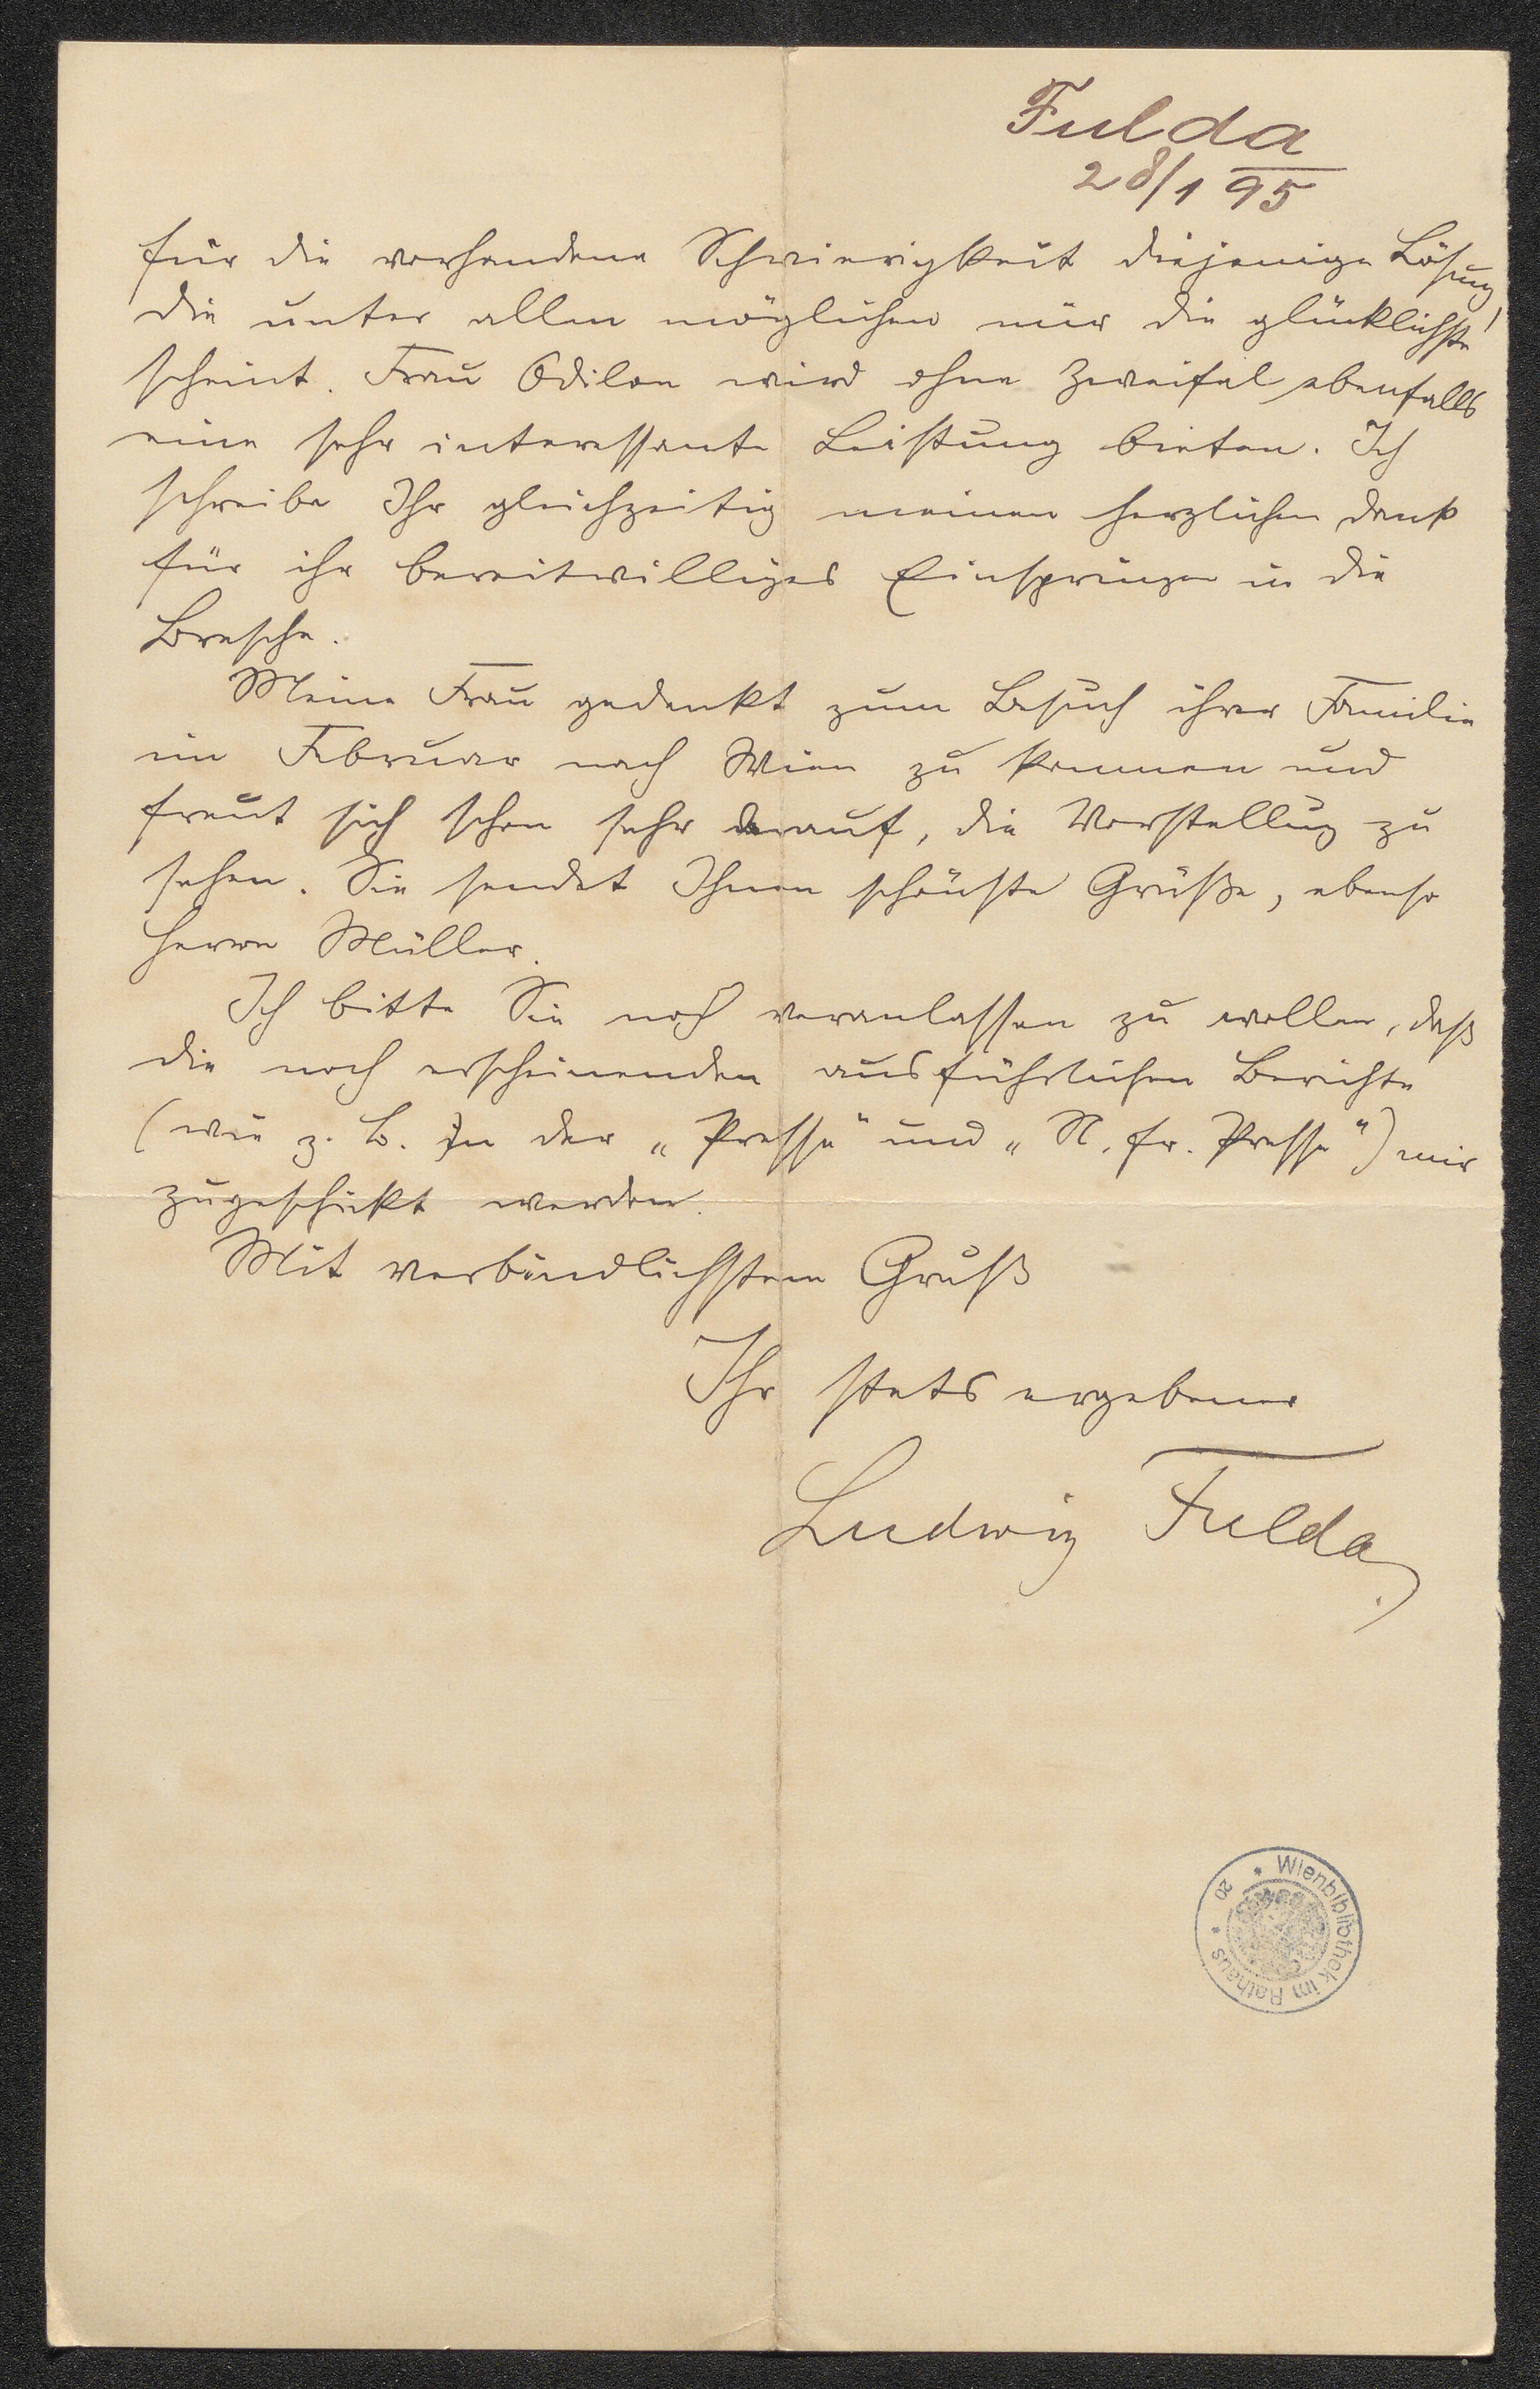 Fulda
28/1 95
für die vorhandene Schwierigkeit diejenige Lösung,
die unter allen möglichen mir die glücklichste
scheint. Frau Odilon wird ohne Zweifel ebenfalls
eine sehr interessante Leistung bieten. Ich
schreibe Ihr gleichzeitig meinen herzlichen Dank
für ihr bereitwilliges Einspringen in die
Bresche.
Meine Frau gedenkt zum Besuch ihrer Familie
im Februar nach Wien zu kommen und
freut sich schon sehr darauf, die Vorstellung zu
sehen. Sie sendet Ihnen schönste Grüße, ebenso
Herrn Müller.
Ich bitte Sie noch veranlassen zu wollen, daß
die noch erscheinenden ausführlichen Berichte
(wie z. B. in der „Presse" und „N. fr. Presse") mir
zugeschickt werden.
Mit verbindlichstem Gruß
Ihr stets ergebener
Ludwig Fulda.
* Wienbibliothek im Rathaus * 20